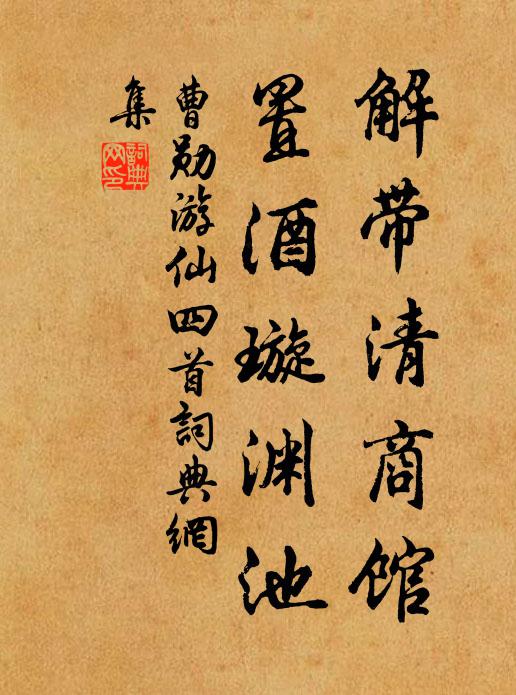 解带清商馆
置酒璇渊池
曹勋游仙四首詞典網
集
詞典网印